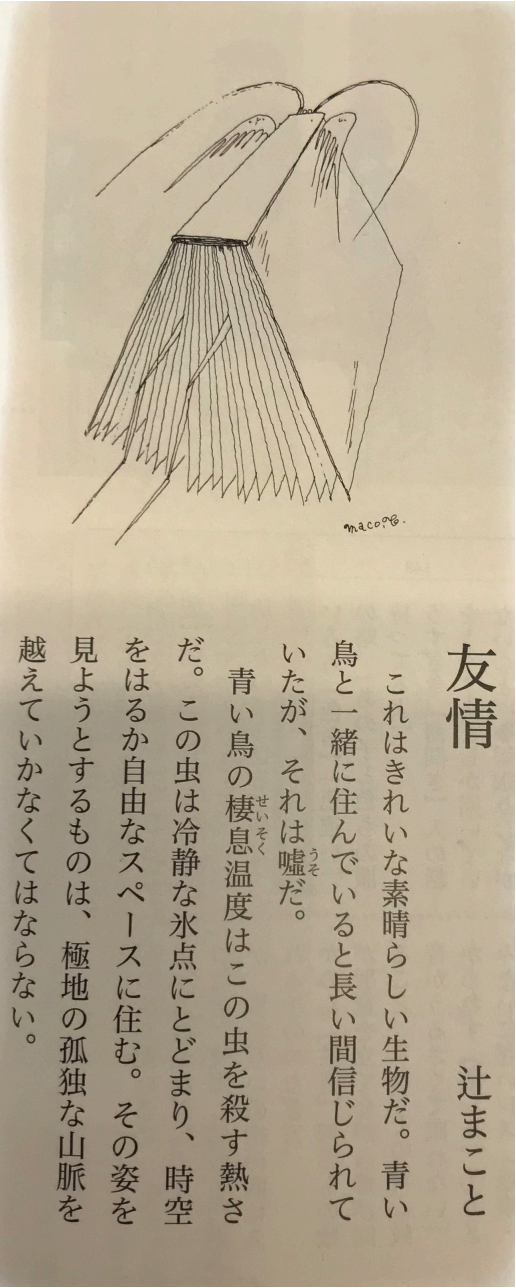 maco.T.
友情
辻まこと
これはきれいな素晴らしい生物だ。青い
鳥と一緒に住んでいると長い間信じられて
いたが、それは嘘だ。
うそ
青い鳥の棲息温度はこの虫を殺す熱さ
せいそく
だ。この虫は冷静な氷点にとどまり、時空
をはるか自由なスペースに住む。その姿を
見ようとするものは、極地の孤独な山脈を
越えていかなくてはならない。